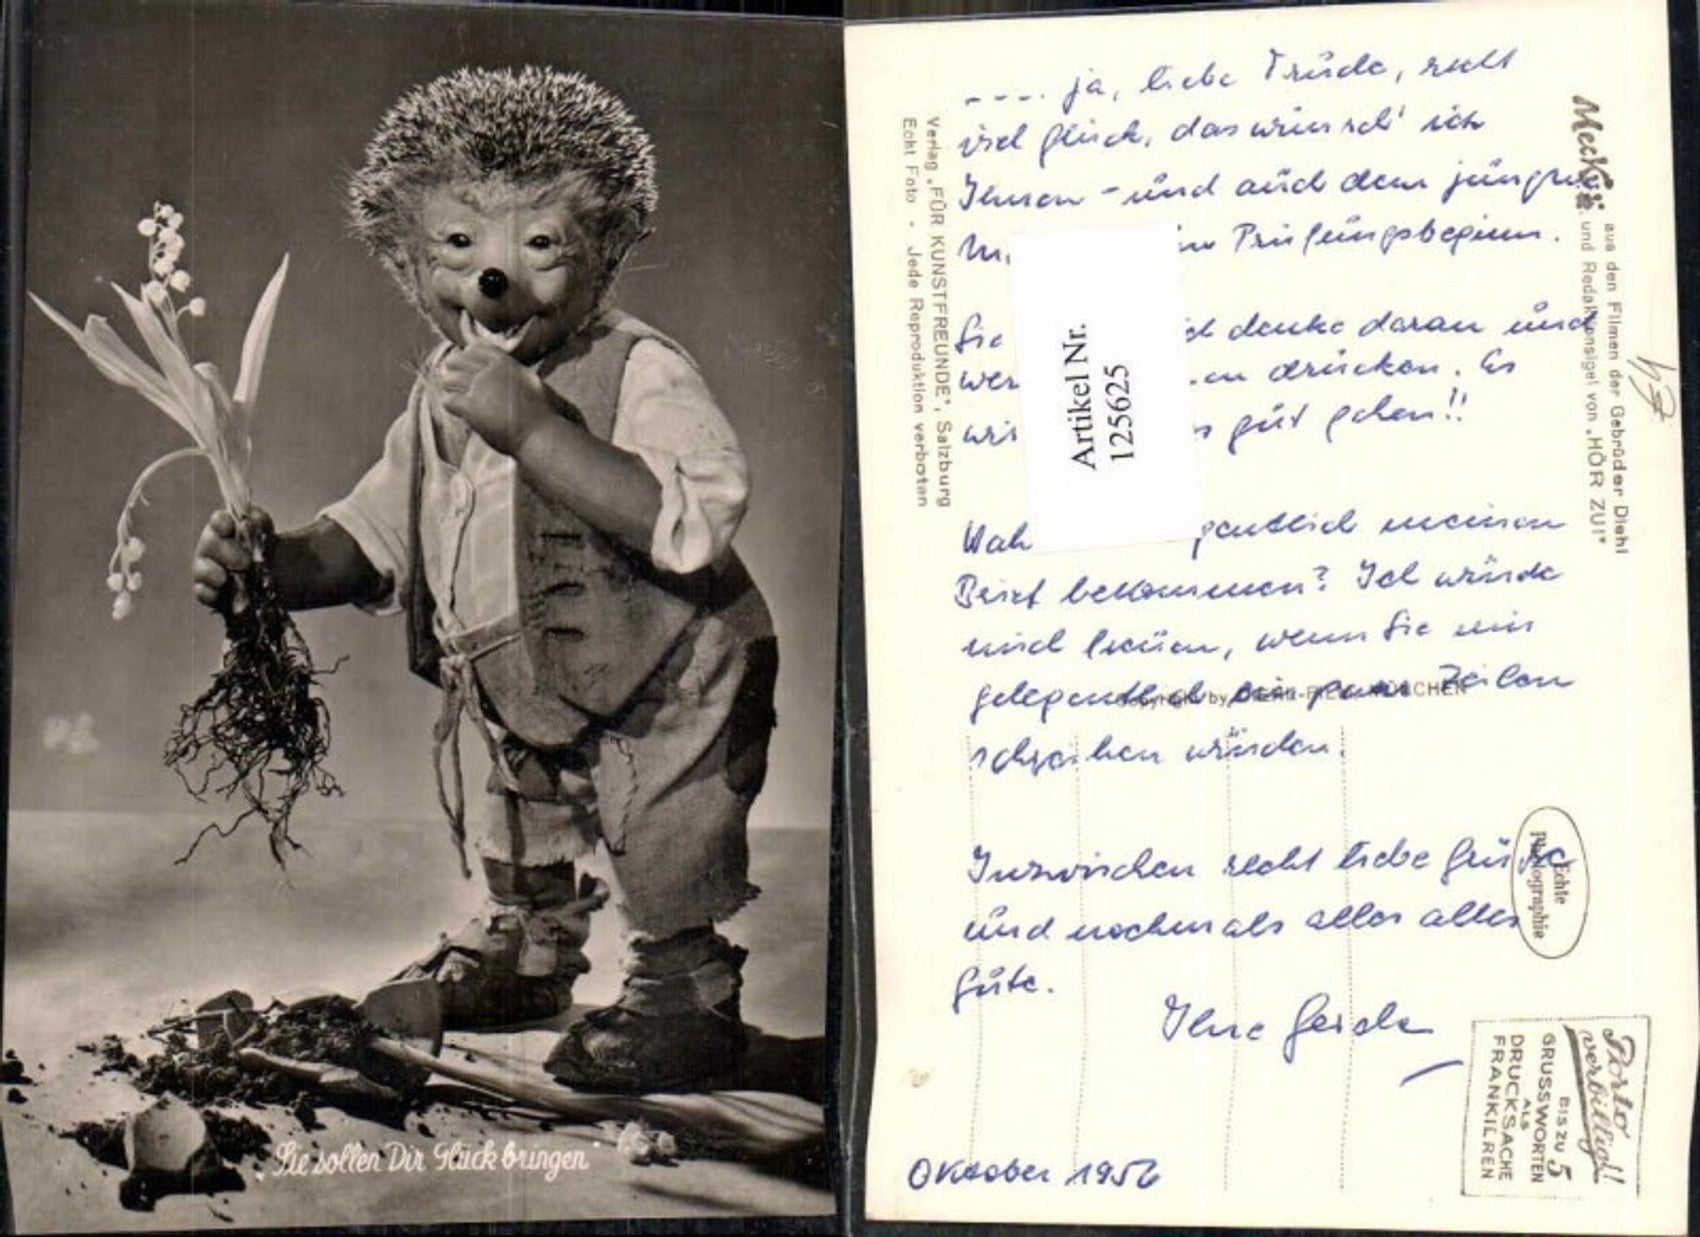 „Sie sollen Dir Glück bringen"
---. ja, liebe Trude, recht
viel Glück, das wünsch' ich
Ihnen - und auch dem jüngsten
zum Prüfungsbeginn.
Sie ich denke daran und
drücken. Es
gut gehen!!
meinen
Brief bekommen? Ich würde
mich freuen, wenn Sie mir
gelegentlich ein paar Zeilen
schreiben würden.
Inzwischen recht liebe Grüße
und nochmals alles alles
Gute.
Ihre Gerda
Oktober 1956
Artikel Nr.
125625
Verlag „FÜR KUNSTFREUNDE", Salzburg
Echt Foto - Jede Reproduktion verboten
Mecki aus den Filmen der Gebrüder Diehl
und Redaktionsigel von „HÖR ZU!"
Copyright by
Echte
Photographie
Porto
verbilligt!
BIS ZU 5
GRUSSWORTEN
ALS
DRUCKSACHE
FRANKIEREN